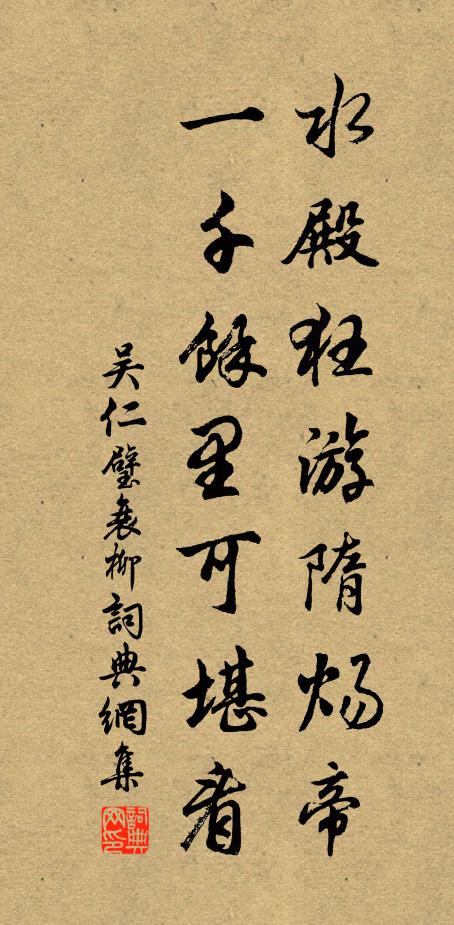 水殿狂游隋炀帝
一千餘里可堪看
吴仁璧衰柳詞典網集
詞典网印